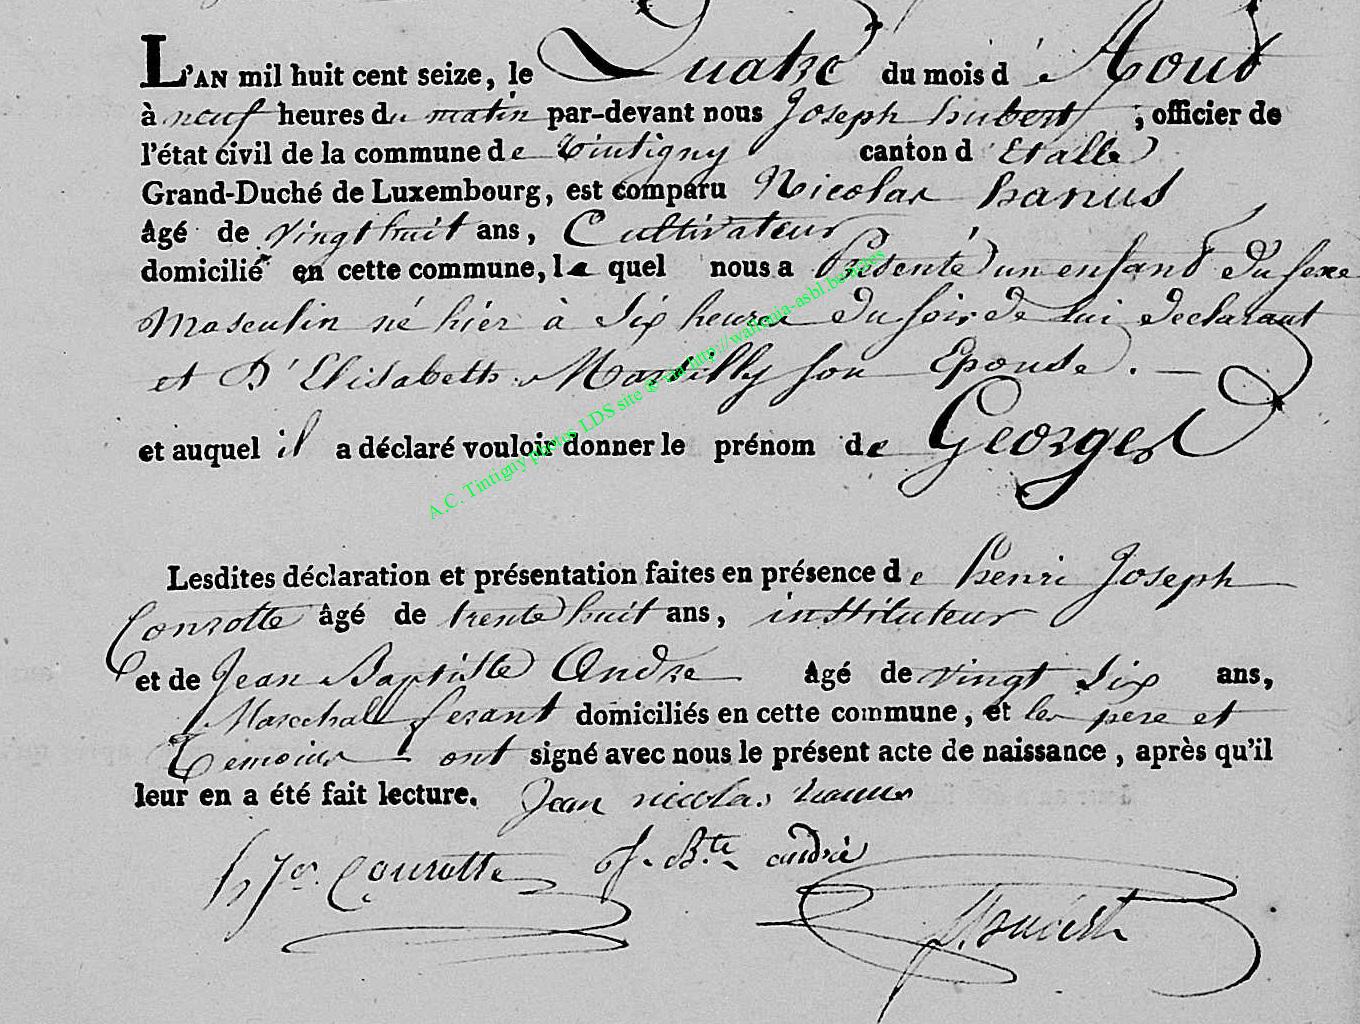 L'AN mil huit cent seize, le Quatre du mois d' Aout
à neuf heures du matin par-devant nous Joseph hubert, officier de
l'état civil de la commune de Tintigny canton d Etalle
Grand-Duché de Luxembourg, est comparu Nicolas hanus
âgé de vingt huit ans, Cultivateur
domicilié en cette commune, le quel nous a Présenté un enfant du sexe
Masculin né hier à Six heures du soir, de lui declarant
et D'Elisabeth Martilly son Epouse. —
et auquel il a déclaré vouloir donner le prénom de Georges
Lesdites déclaration et présentation faites en présence de henri Joseph
Conrotte âgé de trente huit ans, instituteur
et de Jean Baptiste André âgé de vingt Six ans,
Marechal ferant domiciliés en cette commune, et les pere et
Temoins ont signé avec nous le présent acte de naissance, après qu'il
leur en a été fait lecture. Jean nicolas hanus
h Jos. Conrotte J. Bte andré
J. hubert
A.C. Tintigny photos LDS site @ via http://wallonia-asbl.be/sites